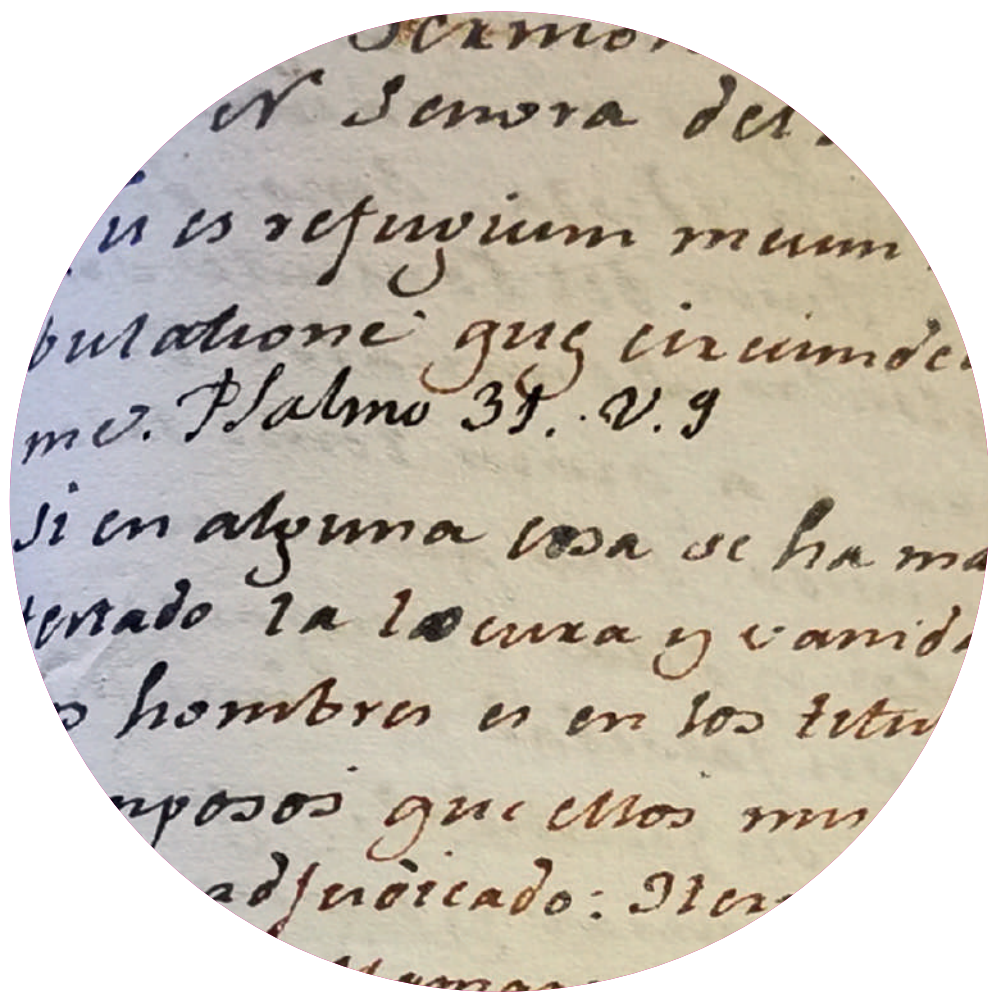 Sermon
N Senora del
tu es refugium meum
bulatione que circumde
me. Psalmo 31. V. 9
Si en alguna cosa se ha ma
tado la locura y vanida
hombres es en los titu
mposos que ellos mis
adjudicado: